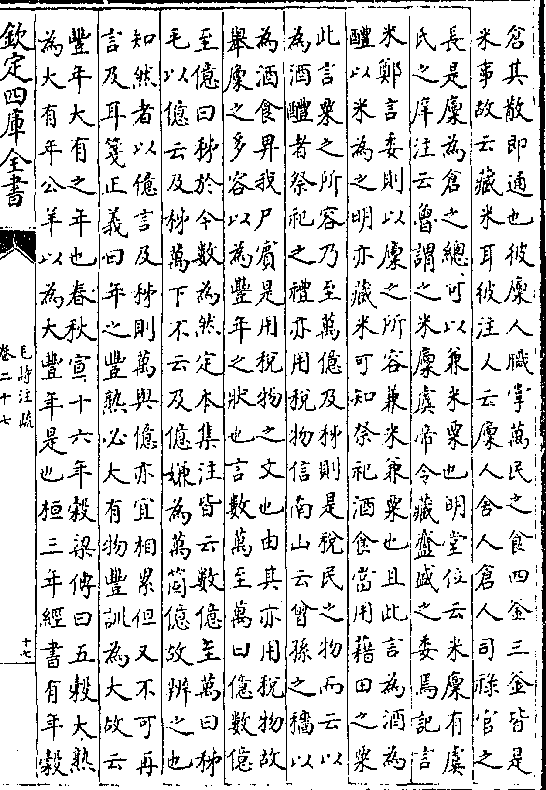 倉其散即通也彼廩人職掌萬民之食四釜三釜皆是
米事故云藏米耳彼注人云廩人舍人倉人司祿官之
長是廩為倉之總可以兼米粟也明堂位云米廩有虞
氏之庠注云魯謂之米廩虞帝令藏齍盛之委焉記言
米鄭言委則以廩之所容兼米兼粟也且此言為酒為
醴以米為之明亦藏米可知祭祀酒食當用藉田之粟
此言粟之所容乃至萬億及秭則是稅民之物而云以
為酒醴者祭祀之禮亦用稅物信南山云曾孫之穡以
為酒食畀我尸賓是用稅物之文也由其亦用稅物故
舉廩之多容以為豐年之狀也言數萬至萬曰億數億
至億曰秭於今數為然定本集注皆云數億至萬曰秭
毛以億云及秭萬下不云及億嫌為萬箇億故辨之也
知然者以億言及秭則萬與億亦宜相累但又不可再
言及耳箋正義曰年之豐熟必大有物豐訓為大故云
豐年大有之年也春秋宣十六年穀梁傳曰五穀大熟
為大有年公羊以為大豐年是也桓三年經書有年穀
欽定四庫全書
毛詩注疏
卷二十七
十七